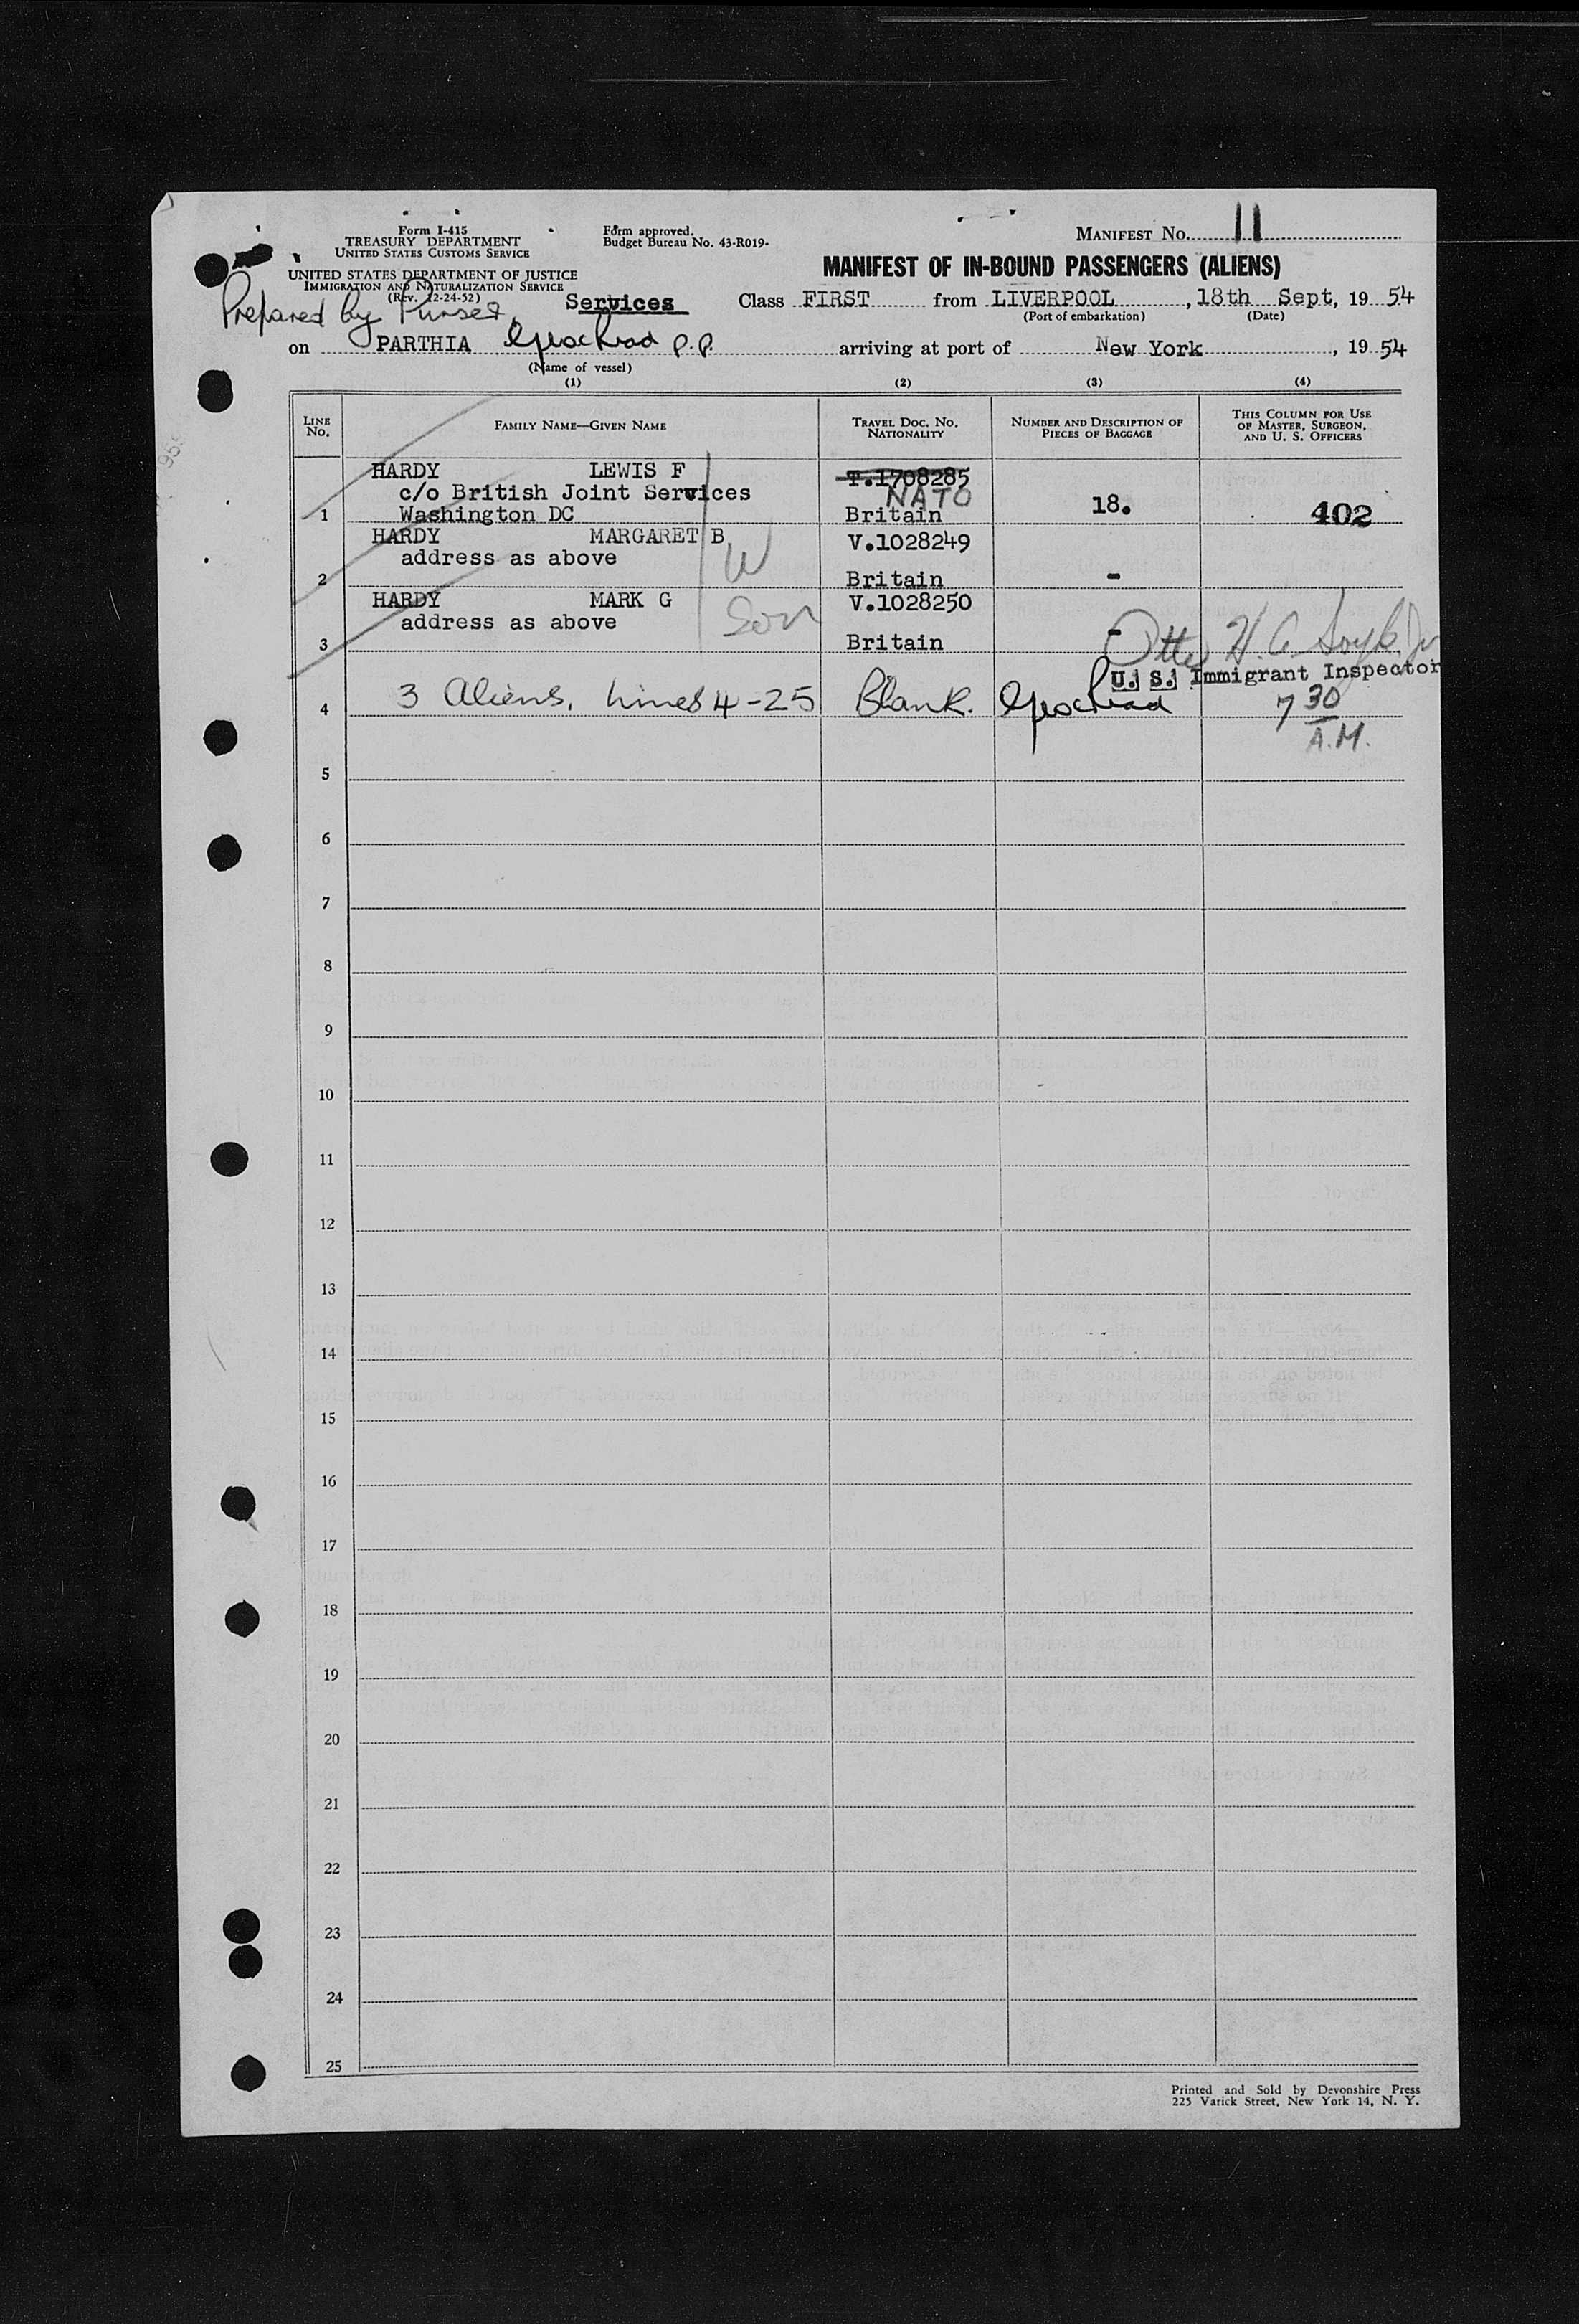 Form I-415
TREASURY DEPARTMENT
UNITED STATES CUSTOMS SERVICE
UNITED STATES DEPARTMENT OF JUSTICE
IMMIGRATION AND NATURALIZATION SERVICE
(Rev. 12-24-52)
Form approved.
Budget Bureau No. 43-R019-
MANIFEST No. 11
MANIFEST OF IN-BOUND PASSENGERS (ALIENS)
Prepared by Purser,
Services Class FIRST from LIVERPOOL, 18th Sept, 19 54
(Port of embarkation) (Date)
on PARTHIA p.p. arriving at port of New York, 19 54
(Name of vessel)
(1) (2) (3) (4)
LINE No.
FAMILY NAME—GIVEN NAME
TRAVEL DOC. NO. NATIONALITY
NUMBER AND DESCRIPTION OF PIECES OF BAGGAGE
THIS COLUMN FOR USE OF MASTER, SURGEON, AND U. S. OFFICERS
HARDY LEWIS F T.1708285
c/o British Joint Services NATO
1 Washington DC Britain 18. 402
HARDY MARGARET B W V.1028249
address as above
2 Britain -
HARDY MARK G Son V.1028250
address as above
3 Britain -
Otto H.
U. S. Immigrant Inspector
4 3 Aliens, Lines 4-25 Blank. 7 30
A.M.
5
6
7
8
9
10
11
12
13
14
15
16
17
18
19
20
21
22
23
24
25
Printed and Sold by Devonshire Press
225 Varick Street, New York 14, N. Y.